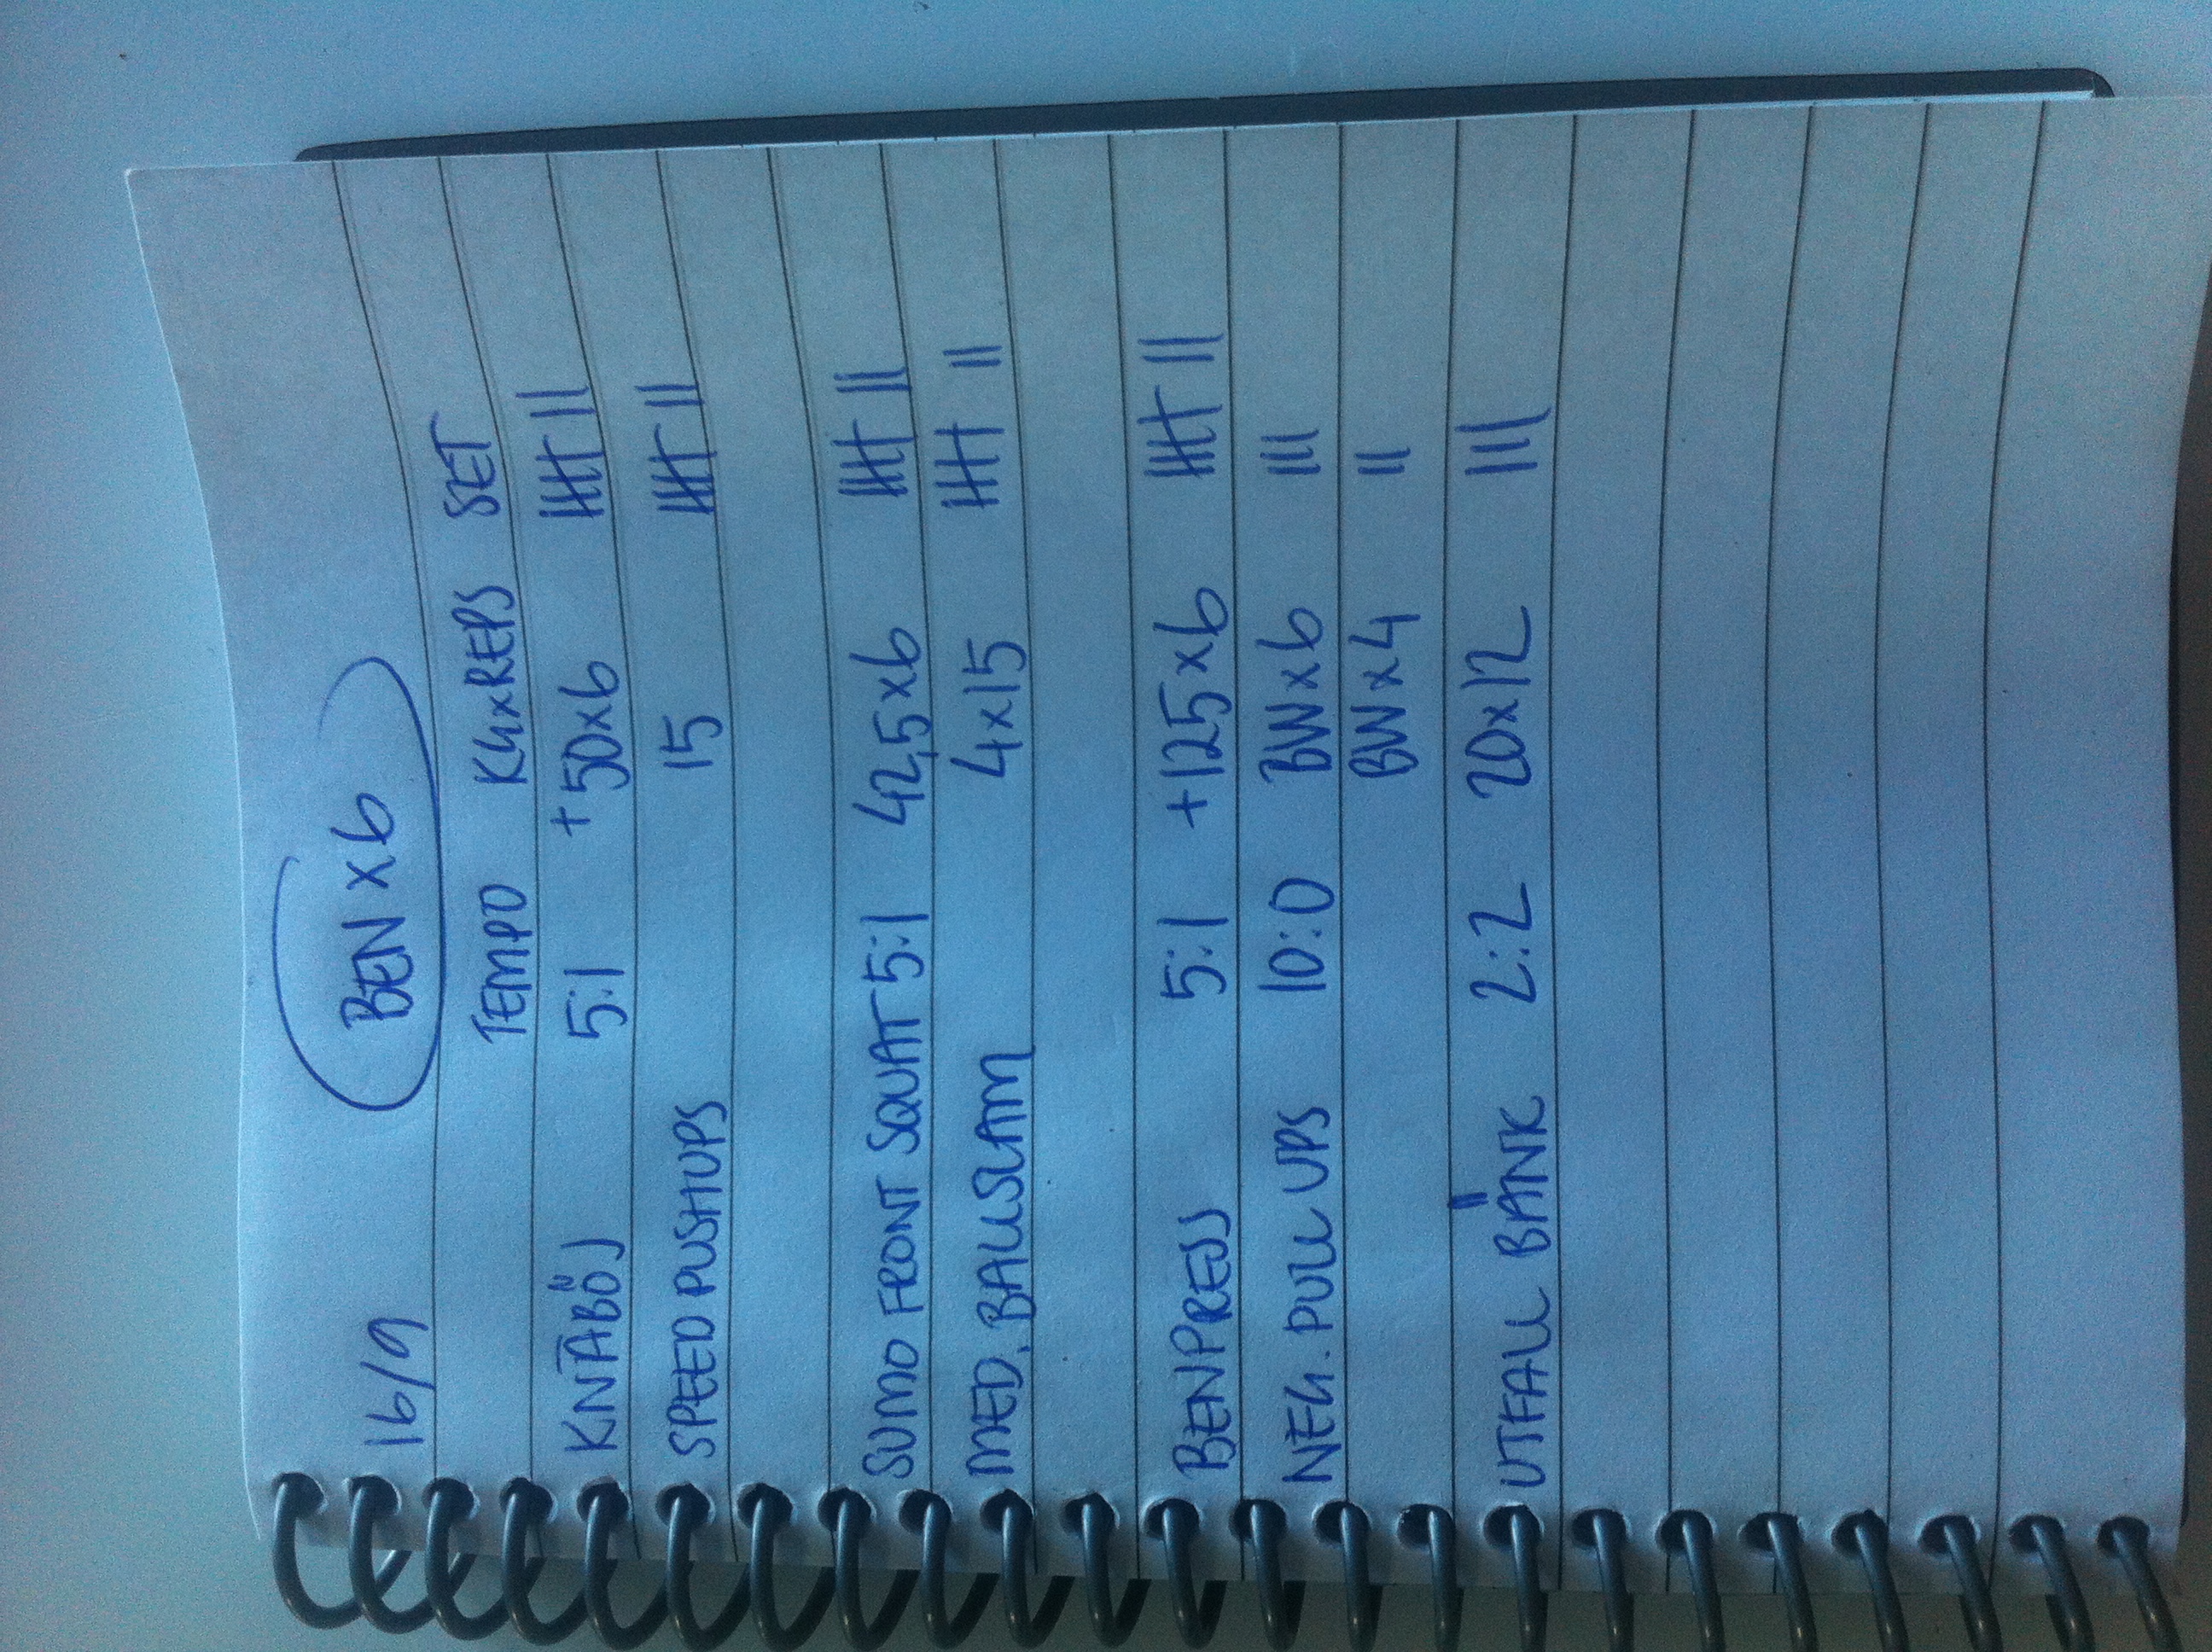 16/9 BEN x 6
TEMPO KGxREPS SET
KNÄBÖJ 5:1 +50x6 |||| ||
SPEED PUSHUPS 15 |||| ||
SUMO FRONT SQUAT 5:1 42,5x6 |||| ||
MED. BALLSLAM 4x15 |||| ||
BENPRESS 5:1 +125x6 |||| ||
NEG. PULL UPS 10:0 BWx6 |||
BWx4 ||
UTFALL BÄNK 2:2 20x12 |||